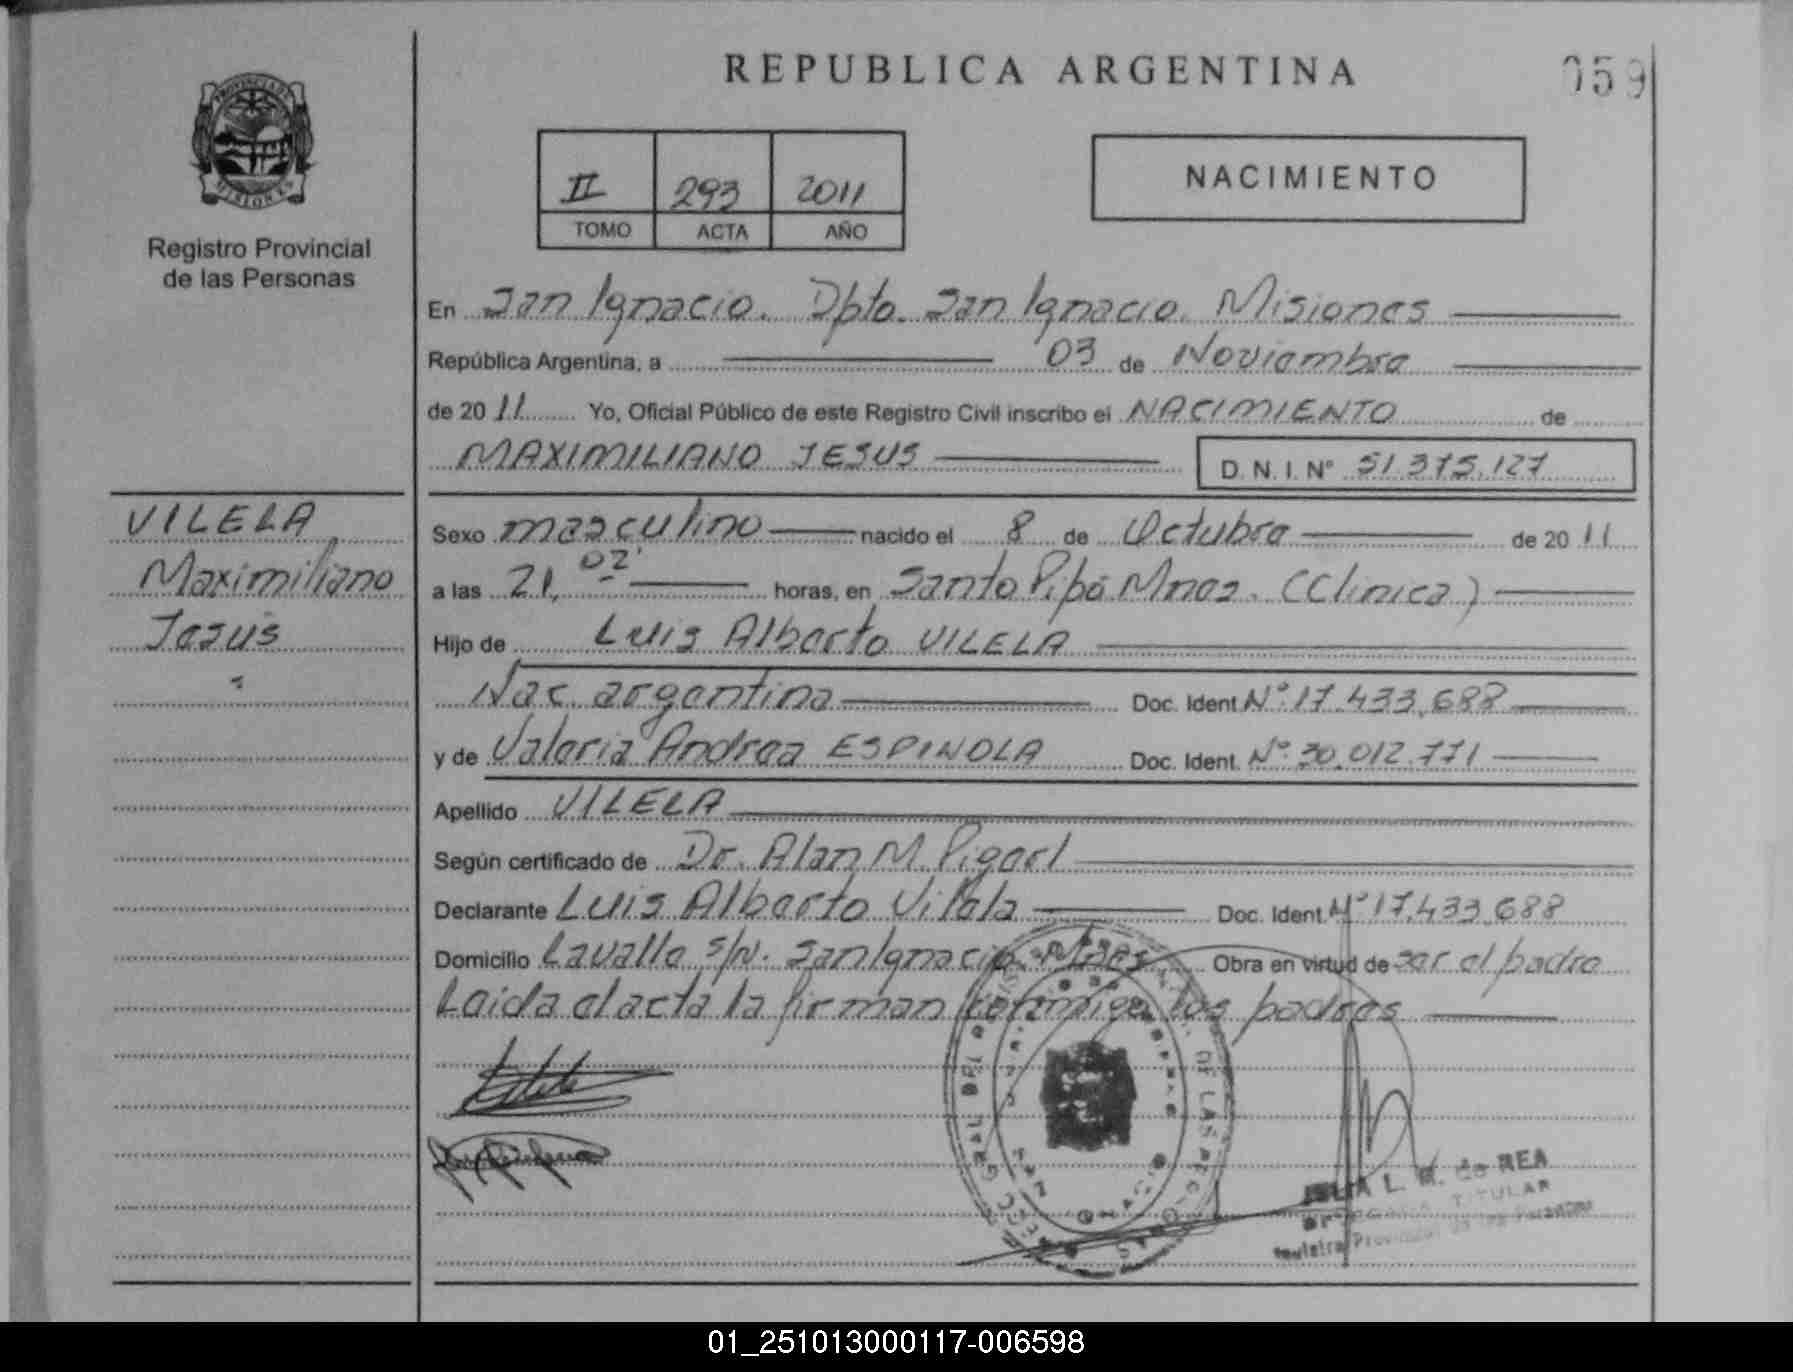 REPUBLICA ARGENTINA
059
PROVINCIA DE
MISIONES
Registro Provincial
de las Personas
II 293 2011
TOMO ACTA AÑO
NACIMIENTO
En San Ignacio. Dpto. San Ignacio. Misiones
República Argentina, a 03 de Noviembre
de 2011 Yo, Oficial Público de este Registro Civil inscribo el NACIMIENTO de
MAXIMILIANO JESUS D. N. I. Nº 51.375.127
VILELA
Maximiliano
Jesús
Sexo masculino nacido el 8 de Octubre de 2011
a las 21,02' horas, en Santo Pipó Mnes. (Clinica)
Hijo de Luis Alberto VILELA
Nac. argentina Doc. Ident. Nº 17.433.688
y de Valeria Andrea ESPINOLA Doc. Ident. Nº 30.012.771
Apellido VILELA
Según certificado de Dr. Alan M.
Declarante Luis Alberto Vilela Doc. Ident. Nº 17.433.688
Domicilio Lavalle s/N. San Ignacio Mnes Obra en virtud de ser el padre
Leida el acta la firman conmigo los padres
L. M. de REA
TITULAR
Registro Provincial de las Personas
01_251013000117-006598